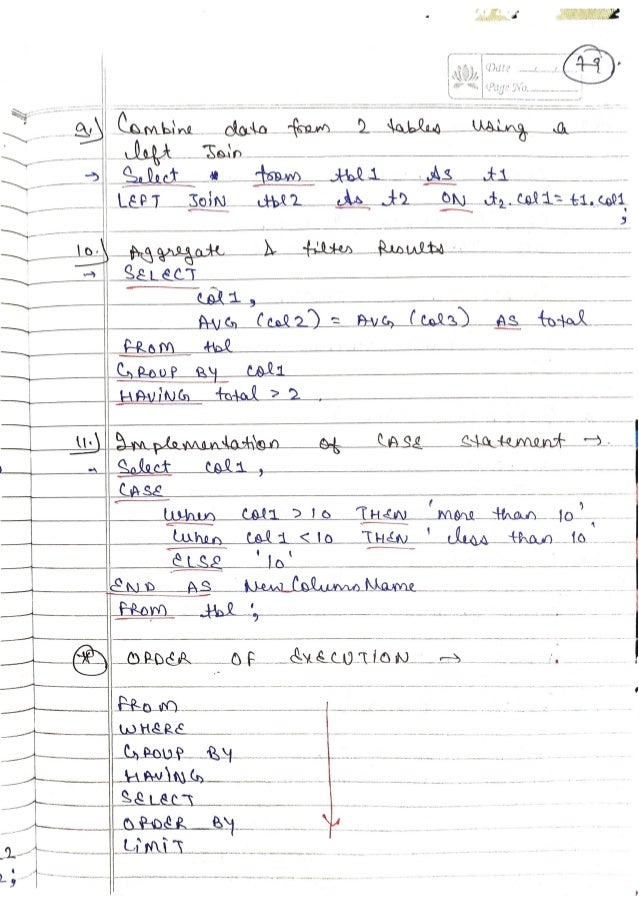 Date
79
Page No.
9.) Combine data from 2 tables using a
left Join
→ Select * from tbl1 AS t1
LEFT JOIN tbl2 As t2 ON t2.col1 = t1.col1
;
10.) Aggregate & filter Results
→ SELECT
col1,
AVG (col2) = AVG (col3) AS total
FROM tbl
GROUP BY col1
HAVING total > 2.
11.) Implementation of CASE statement →
→ Select col1,
CASE
When col1 > 10 THEN 'more than 10'
When col1 < 10 THEN 'less than 10'
ELSE '10'
END AS New_ColumnName
FROM tbl;
* ORDER OF EXECUTION →
FROM
WHERE
GROUP BY
HAVING
SELECT
ORDER BY
LIMIT
2
;